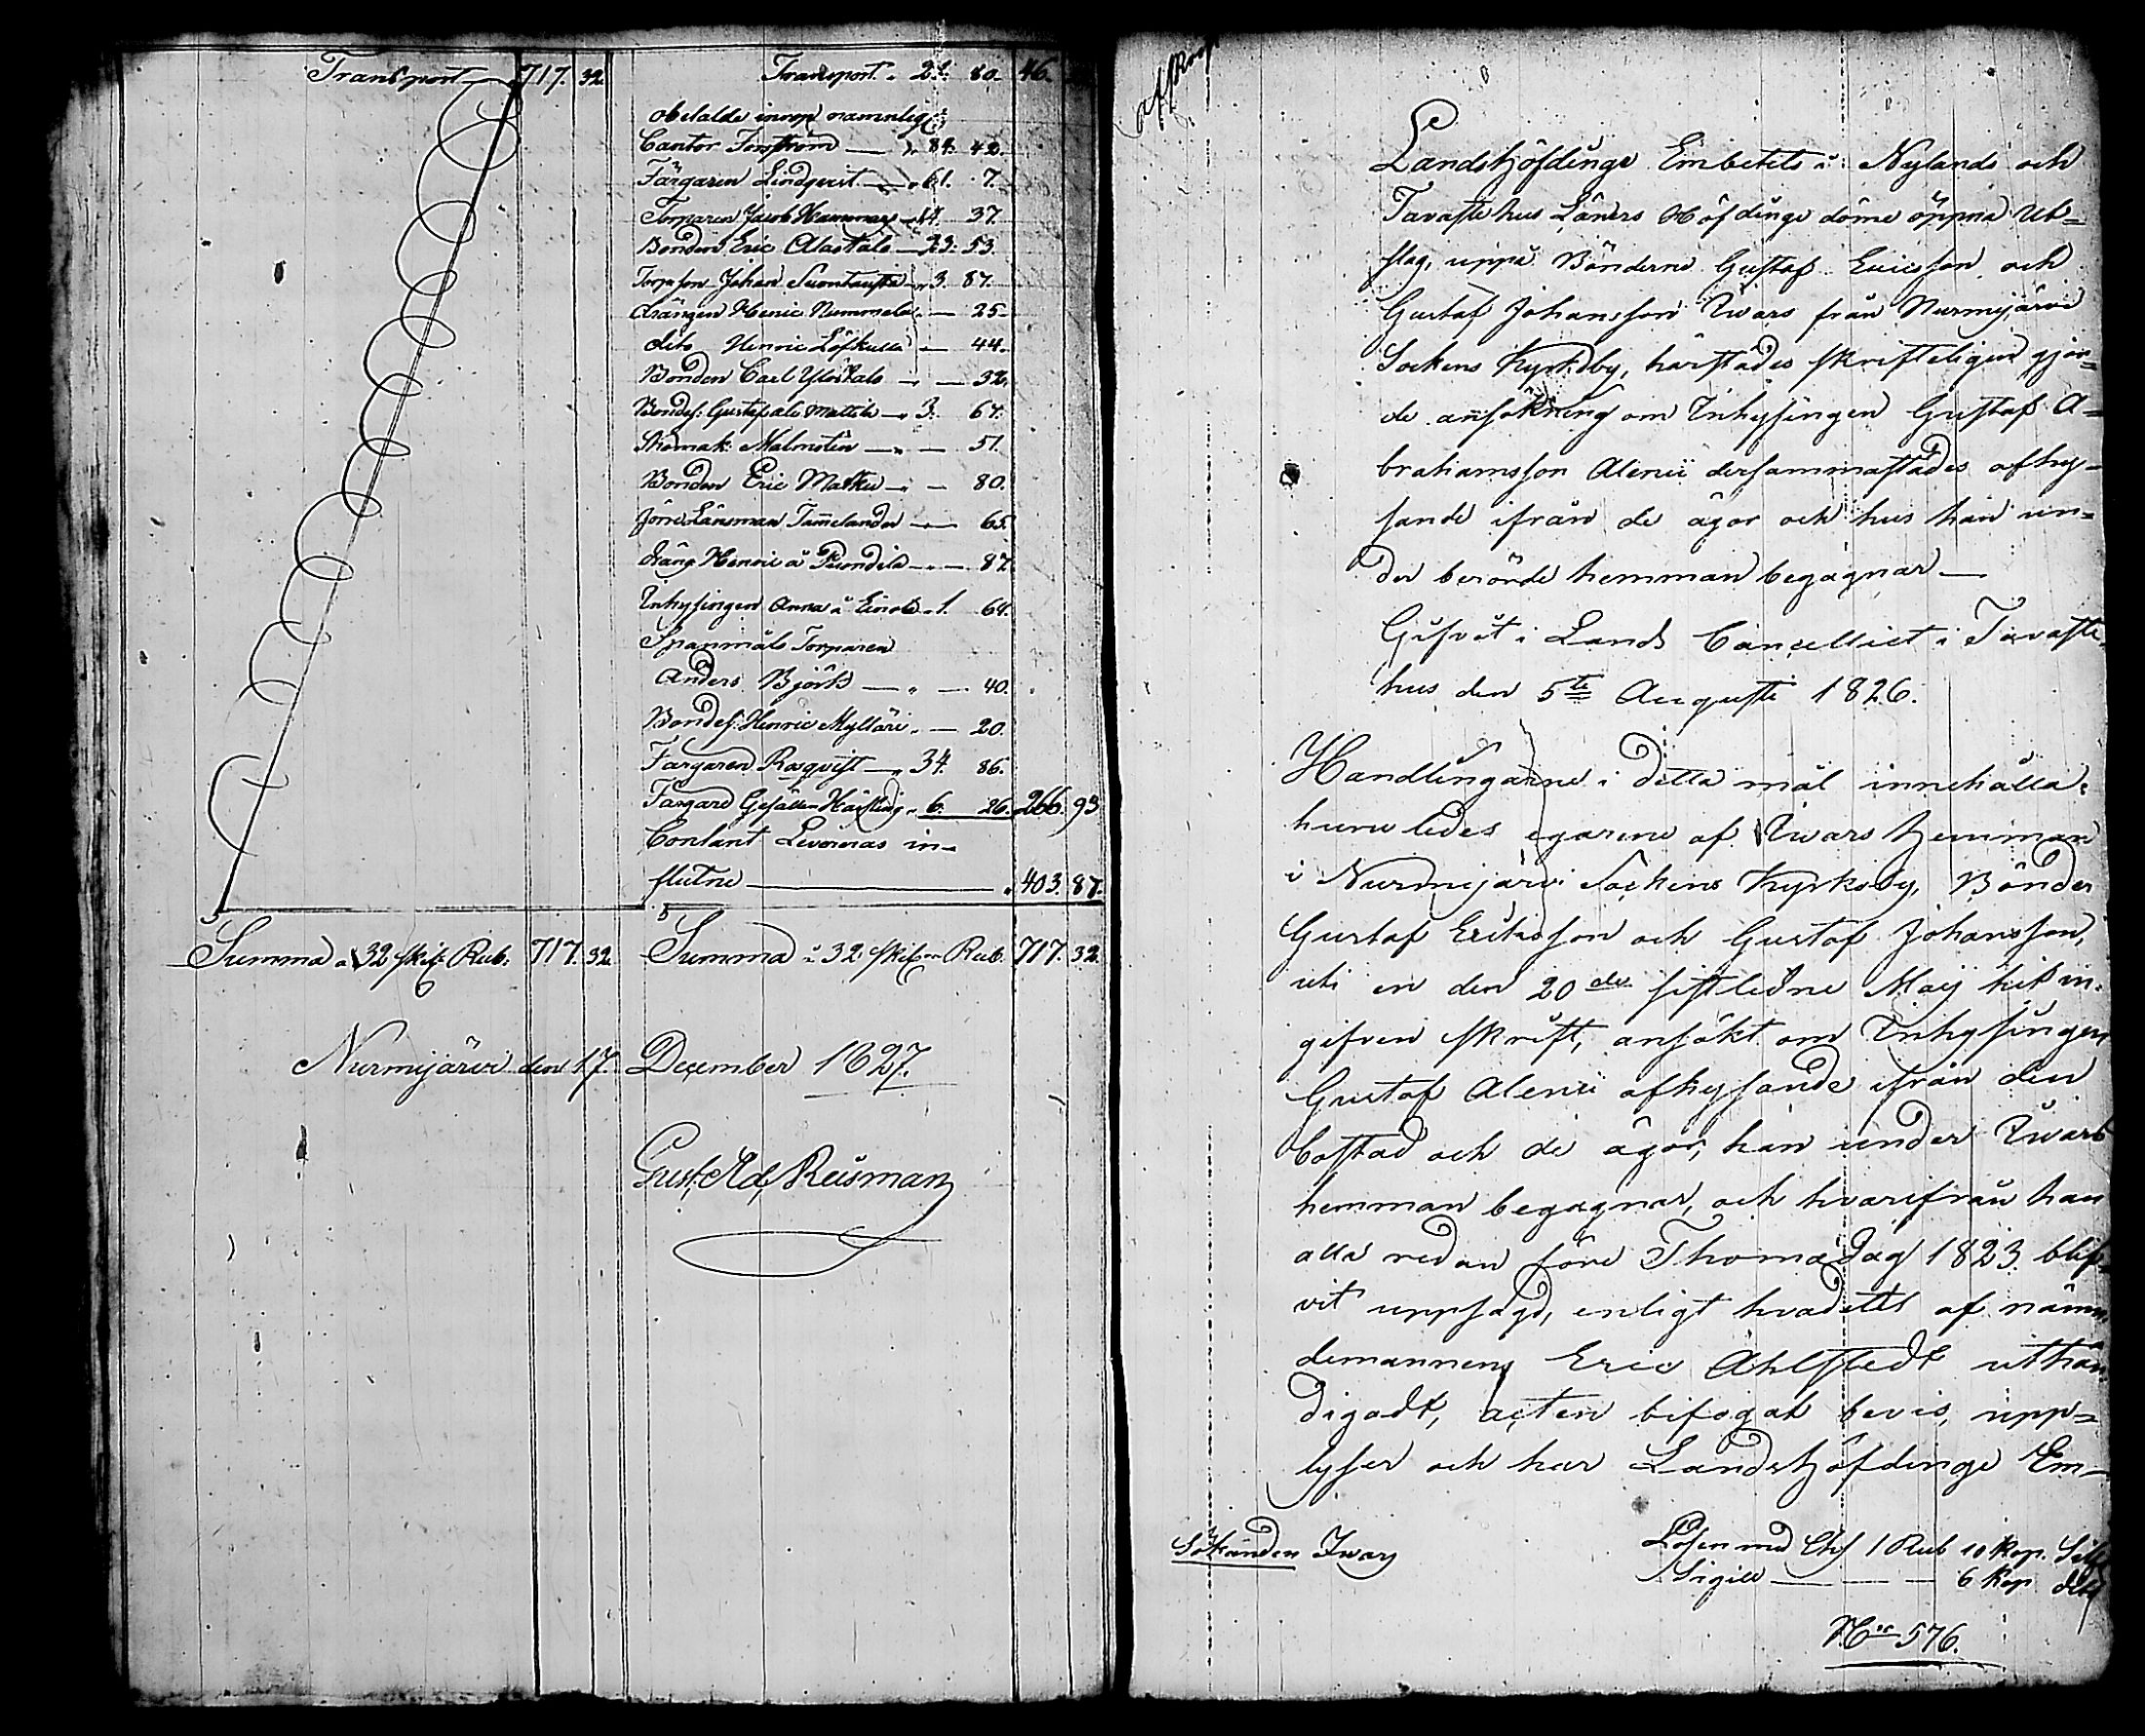 Transport 717. 32.
Summa a 32 skil: Rub: 717. 32.
Transport 80. 46.
obetalde inrop nemnlig:
Cantor Forsström — 84. 42.
Färgaren Lindqvist — 61. 7.
Torparen Jacob Hammar — 14. 37.
Bonden Eric Alastalo — 23. 53.
Torpsson Johan — 3. 87.
drängen Henric Nummela — 25.
dito Henric Löfkulla — 44.
Bonden Carl Ylöstalo — 32.
Bondes: Gustaf ala Mattila — 3. 67.
Skomak: Malmsten — 51.
Bonden Eric Matku — 80.
Länsman Tamelander — 65.
dräng Henric å — 87.
Inhysingen Anna å — 1. 64.
Spanmåls Torparen
Anders Björk — 40.
Bondes: Henric Mylläri — 20.
Färgaren Rosqvist — 34. 86.
Färgare Gesällen — 6. 26. 266. 93
Contant Levereras in-
flutne — 403. 87.
Summa a 32 skil: Rub. 717. 32.
Nurmijärvi den 17. December 1827.
Gust. Ad. Reisman
Landshöfdinge Embetets i Nylands och
Tavastehus Läners Höfdinge döme öppna Ut=
slag, uppå Bönderne Gustaf Ericsson och
Gustaf Johansson Iwars från Nurmijärvi
Sockens Kyrkoby, härstädes skrifteligen gjor=
de ansökning om Inhysingen Gustaf A=
brahamsson Alenii dersammastädes afhy=
sande ifrån de ägor och hus han un=
der berörde hemman begagnar —
Gifvit i Lands Cancelliet i Tavaste
hus den 5te Augusti 1826.
Handlingarne i detta mål innehålla:
huruledes egarene af Iwars hemman
i Nurmijärvi Sockens Kyrkoby, Bönder
Gustaf Ericsson och Gustaf Johansson,
uti en den 20de sistledne Maij hit in-
gifven skrift, ansökt om Inhysingen
Gustaf Alenii afhysande ifrån den
bostad och de ägor, han under Iwars
hemman begagnar, och hvarifrån han
alla redan före Thomædag 1823 blif-
vit uppsagd, enligt hvad ett af nämn-
demannen Eric Ahlstedt uthän-
digadt, acten bifogat bevis, upp=
lyser och har Landshöfdinge Em-
Sökanden Iwars
Lösen med Ch 1 Rub 10 Kop. Silf
Sigill — 6 Kop dito
No 576.